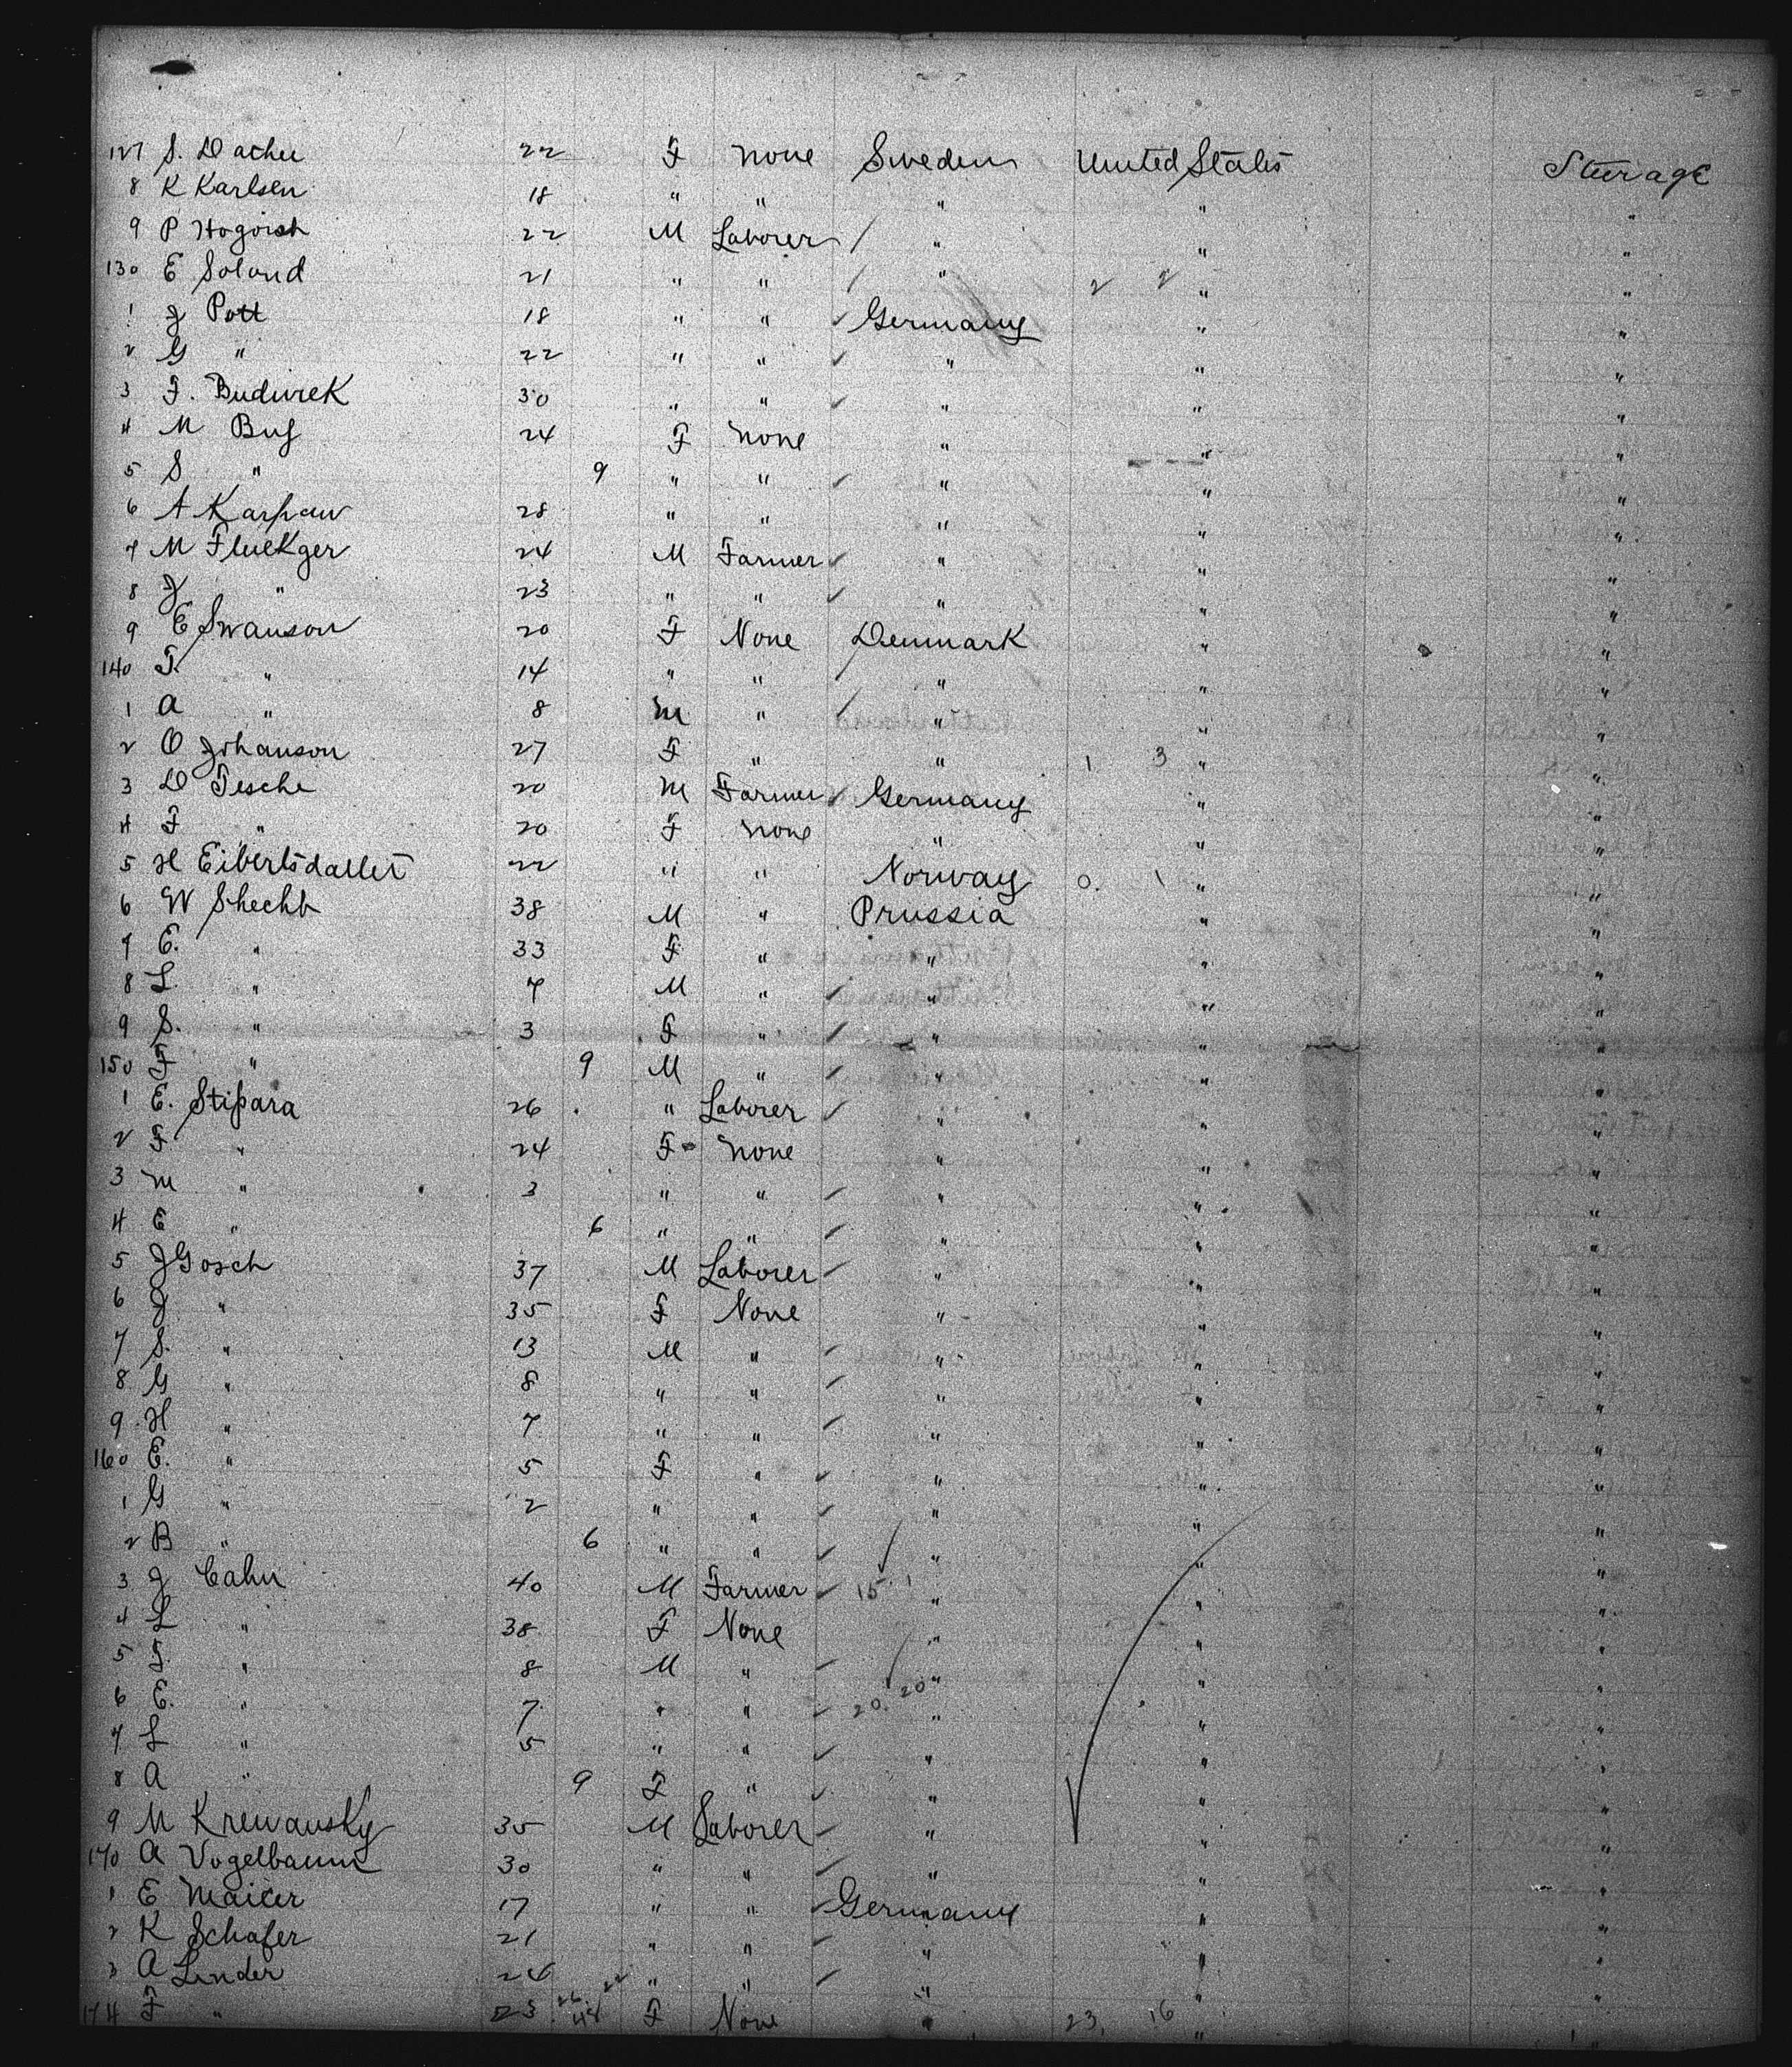 127 S. Dacher 22 F None Sweden United States Steerage
8 K Karlsen 18 " " " " "
9 P 22 M Laborer / " " "
130 E Soland 21 " " / " 2 2 " "
1 J Pott 18 " " ✓ Germany " "
2 G " 22 " " ✓ " " "
3 F. Budwrek 30 " " ✓ " " "
4 M Bug 24 F None " " "
5 S " 9 " " ✓ " " "
6 A Karpaw 28 " " " " "
7 M Fluekger 24 M Farmer ✓ " " "
8 J " 23 " " ✓ " " "
9 E Swanson 20 F None Denmark " "
140 T. " 14 " " / " " "
1 A " 8 M " / " " "
2 O Johanson 27 F " " 1 3 " "
3 D Tesche 20 M Farmer ✓ Germany " "
4 F " 20 F None " " "
5 H Eibertsdatter 22 " " Norway 0. 1 " "
6 W Shechb 38 M " Prussia " "
7 E. " 33 F " " " "
8 L " 7 M " ✓ " " "
9 S. " 3 F " ✓ " " "
150 F " 9 M " ✓ " " "
1 E. Stipara 26 " Laborer ✓ " " "
2 F " 24 F None " " "
3 M " 3 " " ✓ " " "
4 E " 6 " " ✓ " " "
5 J Gosch 37 M Laborer ✓ " " "
6 J " 35 F None " " "
7 S. " 13 M " ✓ " " "
8 G " 8 " " ✓ " " "
9 H " 7 " " ✓ " " "
160 E. " 5 F " ✓ " " "
1 G " 2 " " ✓ " " "
2 B " 6 " " ✓ " " "
3 J Cahn 40 M Farmer ✓ 15 " " "
4 L " 38 F None " " "
5 F. " 8 M " ✓ " " "
6 E. " 7 " " ✓ 20. 20 " " "
7 L " 5 " " ✓ " " "
8 A " 9 F " ✓ " " "
9 M Krewansky 35 M Laborer ✓ " " "
170 A Vogelbaum 30 " " ✓ " " "
1 E Maicer 17 " " ✓ Germany " "
2 K Schafer 21 " " ✓ " " "
3 A Linder 24 " " ✓ " " "
174 F " 23 F None " 23, 16 " "